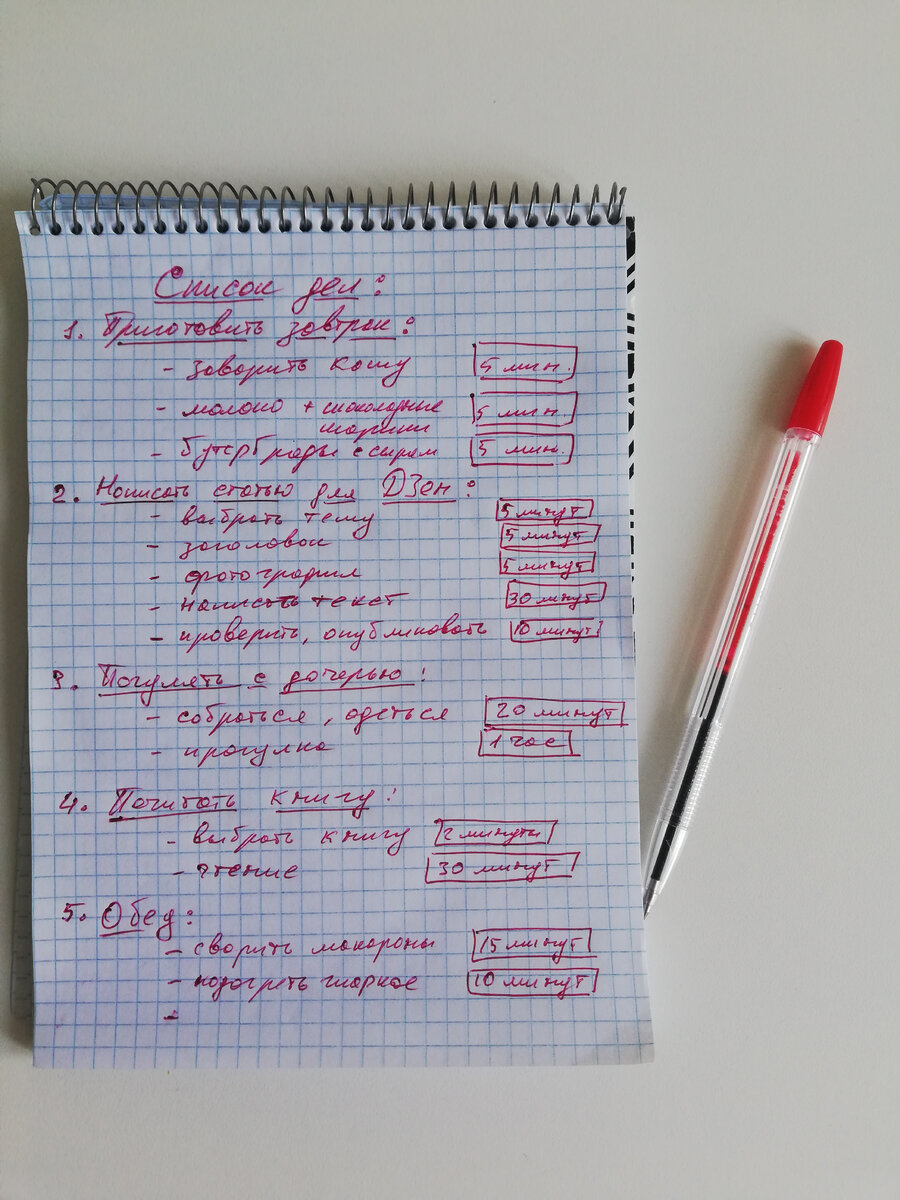 Список дел:
1. Приготовить завтрак:
- заварить кашу 5 мин.
- молоко + шоколадные
шарики 5 мин.
- бутерброды с сыром 5 мин.
2. Написать статью для Дзен:
- выбрать тему 5 минут
- заголовок 5 минут
- фотография 5 минут
- написать текст 30 минут
- проверить, опубликовать 10 минут
3. Погулять с дочерью:
- собраться, одеться 20 минут
- прогулка 1 час
4. Почитать книгу:
- выбрать книгу 2 минуты
- чтение 30 минут
5. Обед:
- сварить макароны 15 минут
- подогреть жаркое 10 минут
-